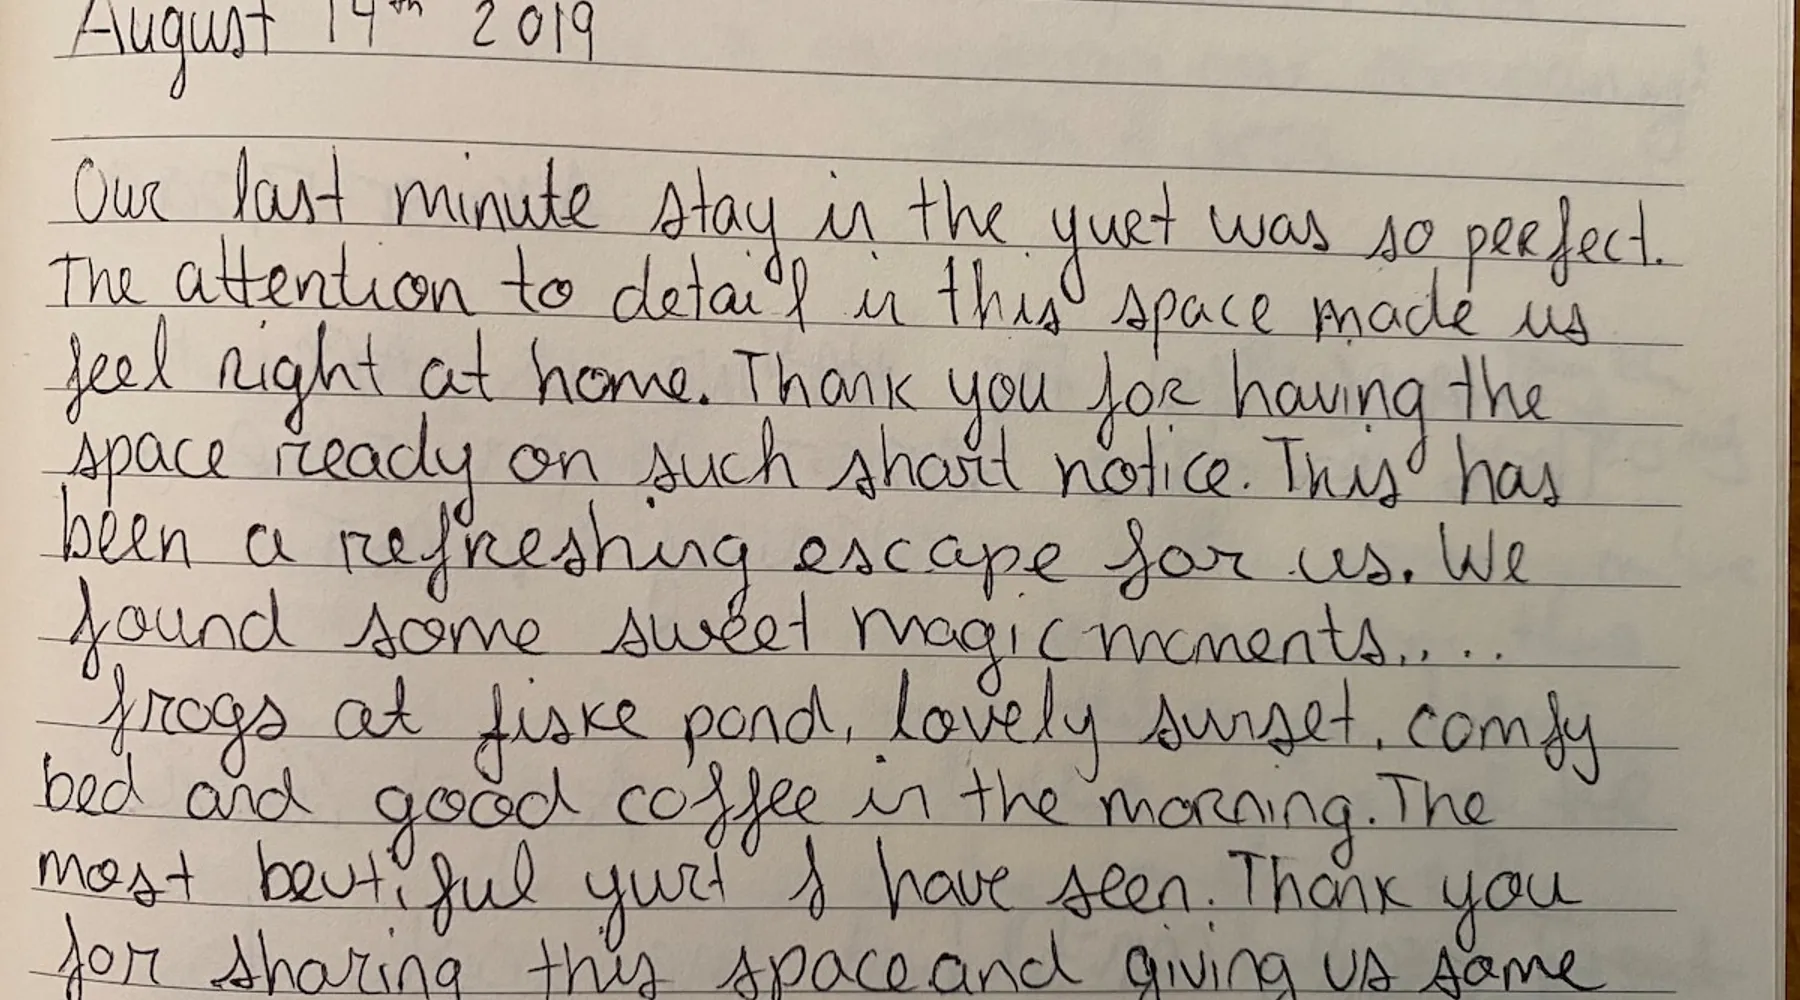 August 14th 2019
Our last minute stay in the yurt was so perfect.
The attention to detail in this space made us
feel right at home. Thank you for having the
space ready on such short notice. This has
been a refreshing escape for us. We
found some sweet magic moments.....
frogs at fiske pond, lovely sunset, comfy
bed and good coffee in the morning. The
most beutiful yurt I have seen. Thank you
for sharing this space and giving us some